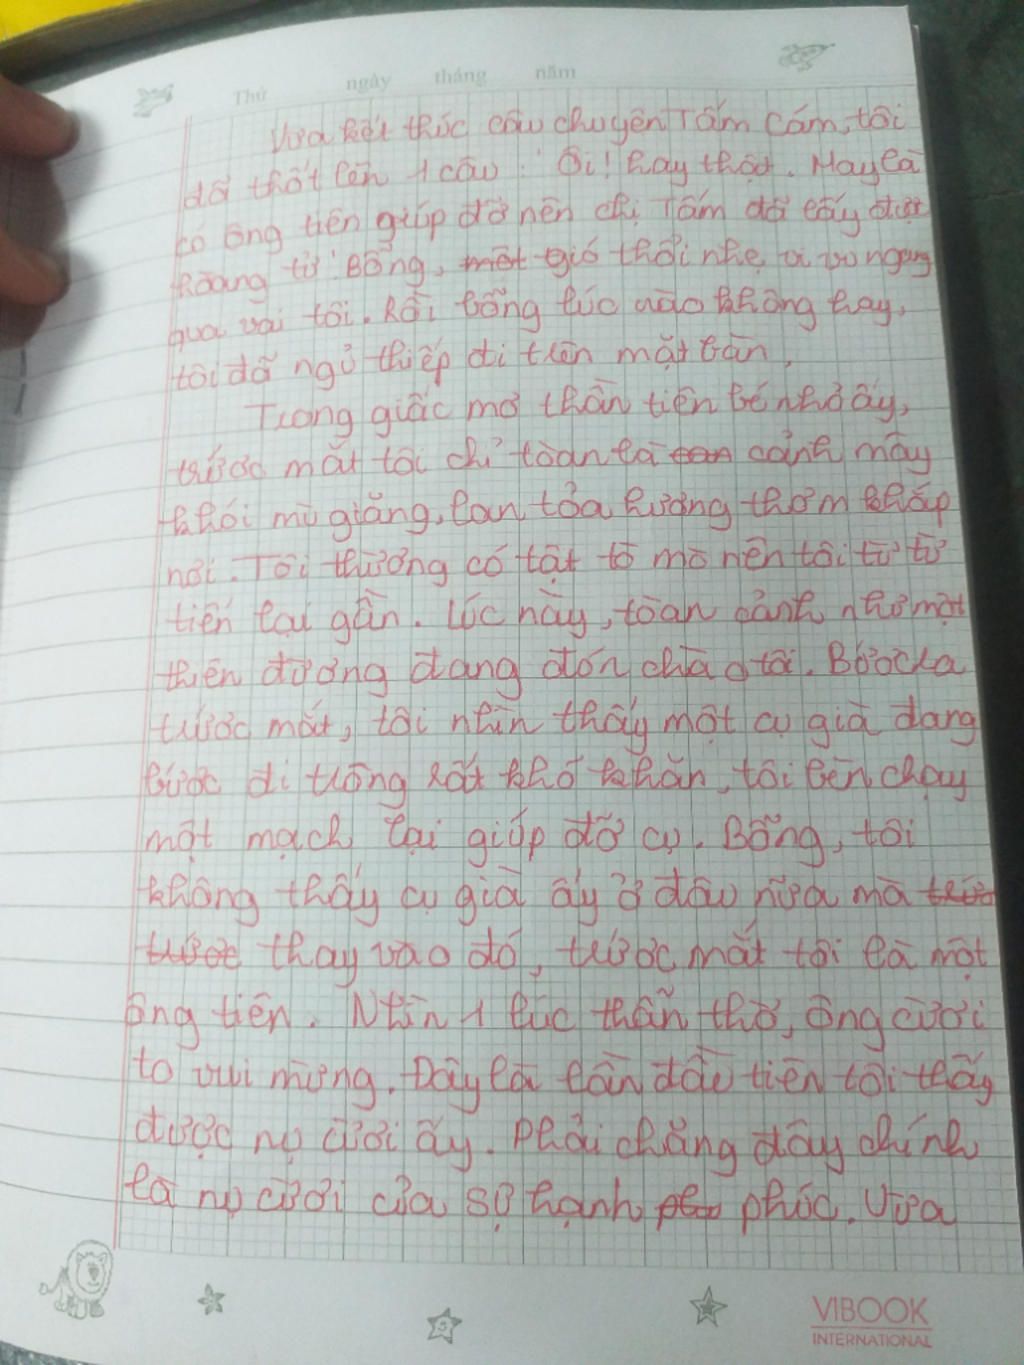 Thứ ngày tháng năm
Vừa kết thúc câu chuyện Tấm Cám, tôi
đã thốt lên 1 câu: "Ôi! hay thật. May là
có ông tiên giúp đỡ nên chị Tấm đã lấy được
hoàng tử". Bỗng, một gió thổi nhẹ vi vu ngang
qua vai tôi. Rồi bỗng lúc nào không hay,
tôi đã ngủ thiếp đi trên mặt bàn.
Trong giấc mơ thần tiên bé nhỏ ấy,
trước mắt tôi chỉ toàn là con cảnh mây
khói mù giăng, lan tỏa hương thơm khắp
nơi. Tôi thường có tật tò mò nên tôi từ từ
tiến lại gần. Lúc này, toàn cảnh như một
thiên đường đang đón chào tôi. Bước ra
trước mắt, tôi nhìn thấy một cụ già đang
bước đi trông rất khó khăn, tôi bèn chạy
một mạch lại giúp đỡ cụ. Bỗng, tôi
không thấy cụ già ấy ở đâu nữa mà
trước thay vào đó, trước mắt tôi là một
ông tiên. Nhìn 1 lúc thẫn thờ, ông cười
to vui mừng. Đây là lần đầu tiên tôi thấy
được nụ cười ấy. Phải chăng đây chính
là nụ cười của sự hạnh phúc. Vừa
VIBOOK
INTERNATIONAL